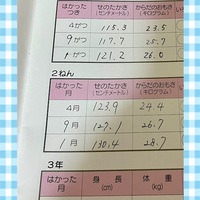 はかった つき せのたかさ (センチメートル) からだのおもさ (キログラム)
4がつ 115.3 23.5
9がつ 117.7 25.7
1がつ 121.2 26.0
2ねん
はかった 月 せのたかさ (センチメートル) からだのおもさ (キログラム)
4月 123.9 24.4
9月 127.1 26.7
1月 130.4 28.7
3年
はかった 月 身長 (cm) 体重 (kg)